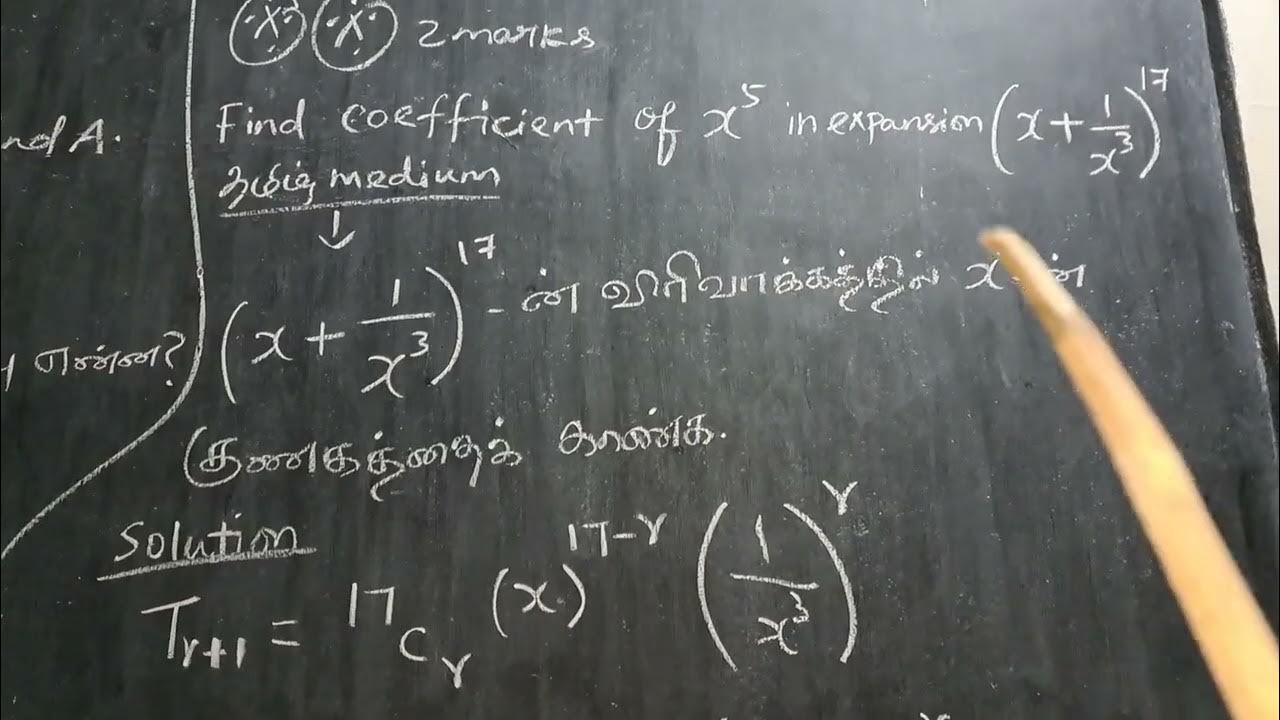 X X 2 marks
nd A.
Find coefficient of x⁵ in expansion (x + 1/x³)¹⁷
தமிழ் medium
↓
(x + 1/x³)¹⁷ - ன் விரிவாக்கத்தில் x ன்
என்ன?
குணகத்தைக் காண்க.
Solution
Tᵣ₊₁ = 17Cᵣ (x)¹⁷⁻ʳ (1/x³)ʳ